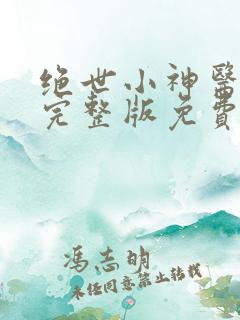 绝世小神醫
完整版免費
冯志明
未任同意禁止转载